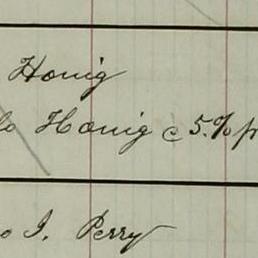 Honig
do Honig @ 5.% p
o I. Perry